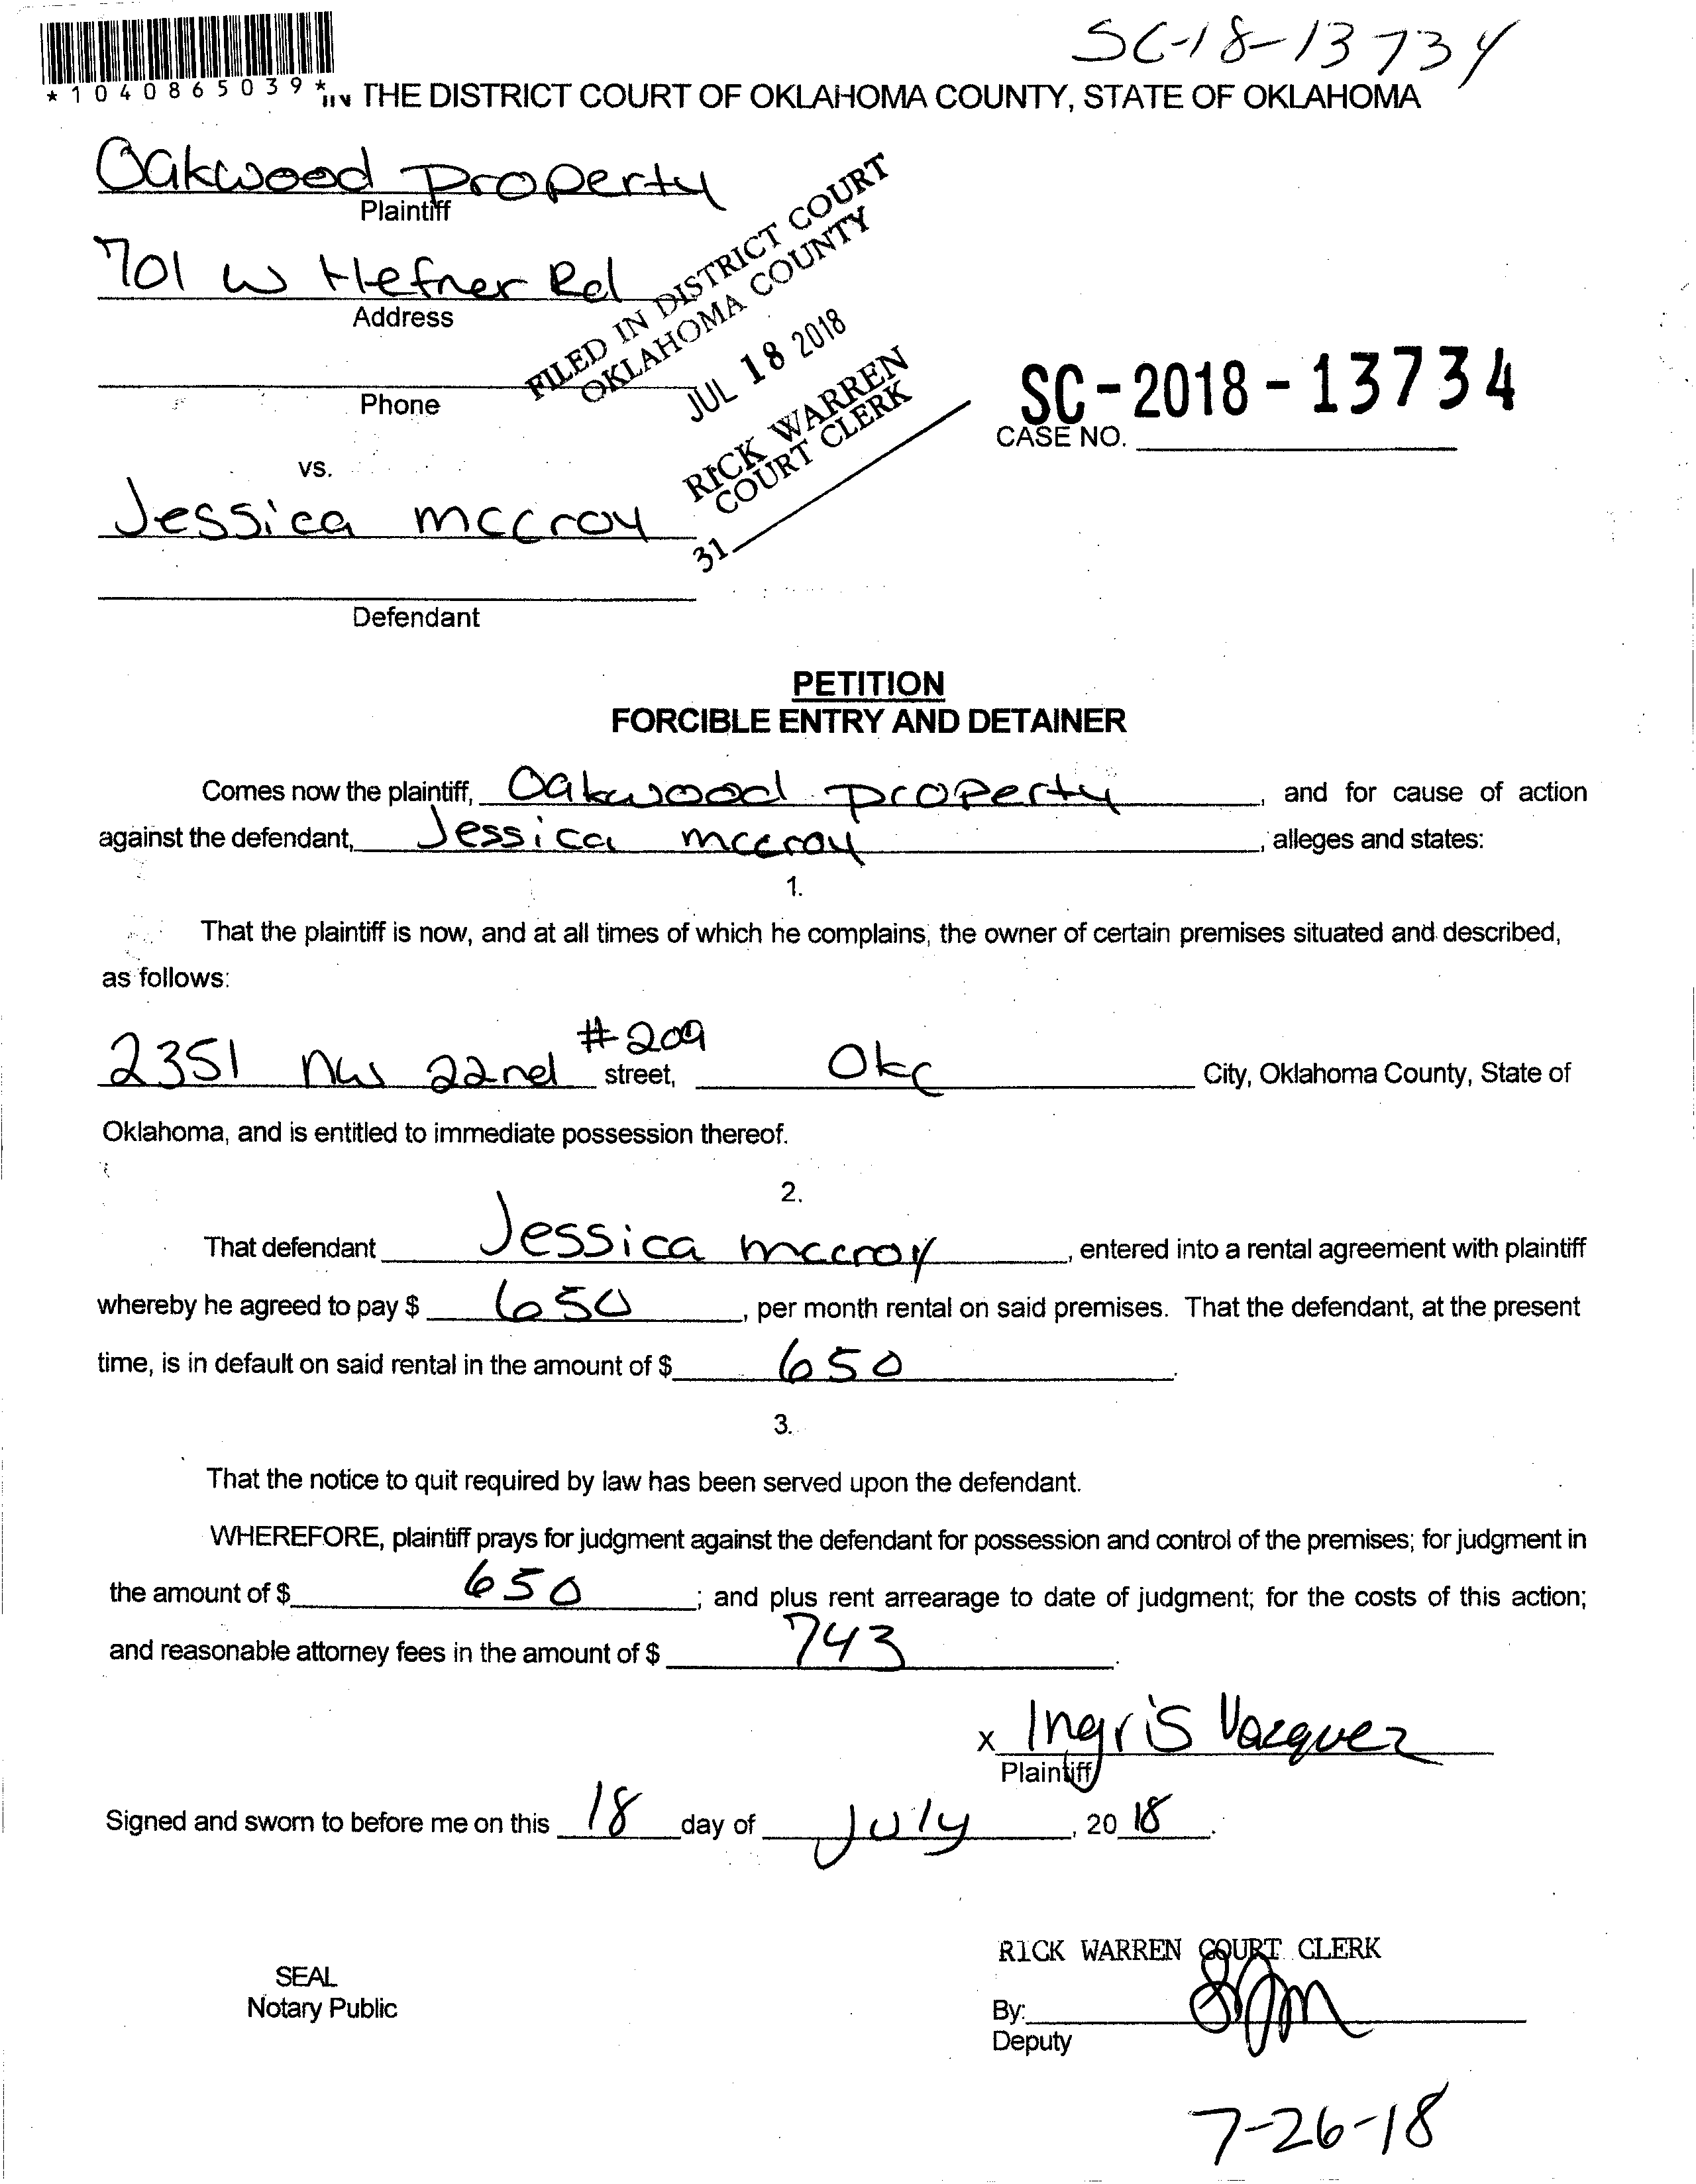 SC-18-13734
*1040865039*
IN THE DISTRICT COURT OF OKLAHOMA COUNTY, STATE OF OKLAHOMA
Oakwood Property
Plaintiff
701 W Hefner Rd
Address
Phone
FILED IN DISTRICT COURT
OKLAHOMA COUNTY
JUL 18 2018
RICK WARREN
COURT CLERK
31
SC-2018-13734
CASE NO.
vs.
Jessica mccroy
Defendant
PETITION
FORCIBLE ENTRY AND DETAINER
Comes now the plaintiff, Oakwood property, and for cause of action
against the defendant, Jessica mccroy, alleges and states:
1.
That the plaintiff is now, and at all times of which he complains, the owner of certain premises situated and described,
as follows:
2351 nw 22nd #209 street, Okc City, Oklahoma County, State of
Oklahoma, and is entitled to immediate possession thereof.
2.
That defendant Jessica mccroy, entered into a rental agreement with plaintiff
whereby he agreed to pay $ 650, per month rental on said premises. That the defendant, at the present
time, is in default on said rental in the amount of $ 650.
3.
That the notice to quit required by law has been served upon the defendant.
WHEREFORE, plaintiff prays for judgment against the defendant for possession and control of the premises; for judgment in
the amount of $ 650; and plus rent arrearage to date of judgment; for the costs of this action;
and reasonable attorney fees in the amount of $ 743.
x Ingris Vazquez
Plaintiff
Signed and sworn to before me on this 18 day of July, 20 18.
RICK WARREN COURT CLERK
SEAL
Notary Public
By:
Deputy
7-26-18